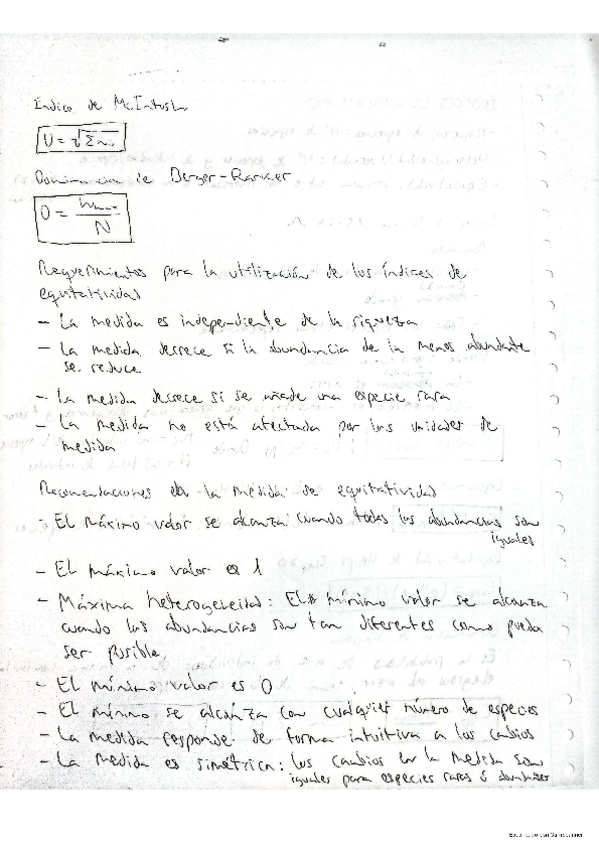 Índice de McIntosh
U = √Σn
Dominancia de Berger-Parker
D = nmax / N
Requerimientos para la utilización de los índices de
equitatividad
- La medida es independiente de la riqueza
- La medida decrece si la abundancia de la menos abundante
se reduce
- La medida decrece si se añade una especie rara
- La medida no está afectada por las unidades de
medida
Recomendaciones la medida de equitatividad
- El máximo valor se alcanza cuando todas las abundancias son
iguales
- El máximo valor es 1
- Máxima heterogeneidad: El mínimo valor se alcanza
cuando las abundancias son tan diferentes como pueda
ser posible
- El mínimo valor es 0
- El mínimo se alcanza con cualquier número de especies
- La medida responde de forma intuitiva a los cambios
- La medida es simétrica: los cambios en la medida son
iguales para especies raras ó abundantes